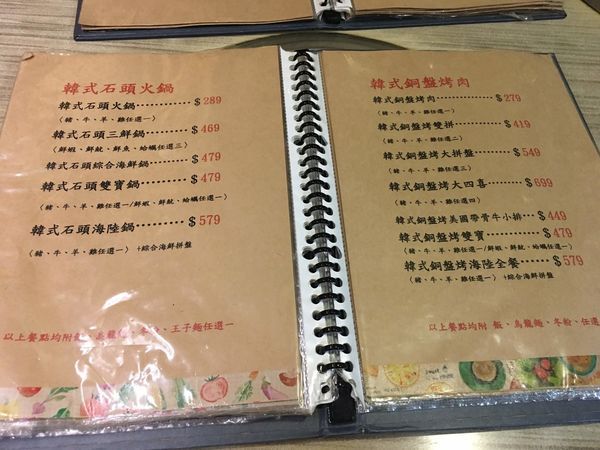 韓式石頭火鍋
韓式石頭火鍋………… $289
（豬、牛、羊、雞任選一）
韓式石頭三鮮鍋……… $469
（鮮蝦、鮮魷、鮮魚、蛤蠣任選三）
韓式石頭綜合海鮮鍋… $479
韓式石頭雙寶鍋……… $479
（豬、牛、羊、雞任選一/鮮蝦、鮮魷、蛤蠣任選一）
韓式石頭海陸鍋……… $579
（豬、牛、羊、雞任選一） +綜合海鮮拼盤
以上餐點均附飯、烏龍麵、冬粉、王子麵任選一
韓式銅盤烤肉
韓式銅盤烤肉………… $279
（豬、牛、羊、雞任選一）
韓式銅盤烤雙拼……… $419
（豬、牛、羊、雞任選二）
韓式銅盤烤大拼盤…… $549
（豬、牛、羊、雞任選三）
韓式銅盤烤大四喜…… $699
（豬、牛、羊、雞任選四）
韓式銅盤烤美國帶骨牛小排… $449
韓式銅盤烤雙寶……… $479
（豬、牛、羊、雞任選一/鮮蝦、鮮魷、蛤蠣任選一）
韓式銅盤烤海陸全餐… $579
（豬、牛、羊、雞任選一） +綜合海鮮拼盤
以上餐點均附 飯、烏龍麵、冬粉、任選